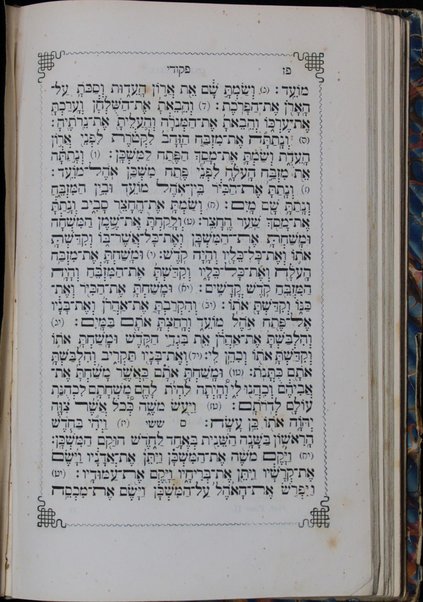 פקודי
פז
מוֹעֵד: (ג) וְשַׂמְתָּ שָׁם אֵת אֲרוֹן הָעֵדוּת וְסַכֹּתָ עַל־
הָאָרֹן אֶת־הַפָּרֹכֶת: (ד) וְהֵבֵאתָ אֶת־הַשֻּׁלְחָן וְעָרַכְתָּ
אֶת־עֶרְכּוֹ וְהֵבֵאתָ אֶת־הַמְּנֹרָה וְהַעֲלֵיתָ אֶת־נֵרֹתֶיהָ:
(ה) וְנָתַתָּה אֶת־מִזְבַּח הַזָּהָב לִקְטֹרֶת לִפְנֵי אֲרוֹן
הָעֵדֻת וְשַׂמְתָּ אֶת־מָסַךְ הַפֶּתַח לַמִּשְׁכָּן: (ו) וְנָתַתָּה
אֵת מִזְבַּח הָעֹלָה לִפְנֵי פֶּתַח מִשְׁכַּן אֹהֶל־מוֹעֵד:
(ז) וְנָתַתָּ אֶת־הַכִּיֹּר בֵּין־אֹהֶל מוֹעֵד וּבֵין הַמִּזְבֵּחַ
וְנָתַתָּ שָׁם מָיִם: (ח) וְשַׂמְתָּ אֶת־הֶחָצֵר סָבִיב וְנָתַתָּ
אֶת־מָסַךְ שַׁעַר הֶחָצֵר: (ט) וְלָקַחְתָּ אֶת־שֶׁמֶן הַמִּשְׁחָה
וּמָשַׁחְתָּ אֶת־הַמִּשְׁכָּן וְאֶת־כָּל־אֲשֶׁר־בּוֹ וְקִדַּשְׁתָּ
אֹתוֹ וְאֶת־כָּל־כֵּלָיו וְהָיָה קֹדֶשׁ: (י) וּמָשַׁחְתָּ אֶת־מִזְבַּח
הָעֹלָה וְאֶת־כָּל־כֵּלָיו וְקִדַּשְׁתָּ אֶת־הַמִּזְבֵּחַ וְהָיָה
הַמִּזְבֵּחַ קֹדֶשׁ קָדָשִׁים: (יא) וּמָשַׁחְתָּ אֶת־הַכִּיֹּר וְאֶת־
כַּנּוֹ וְקִדַּשְׁתָּ אֹתוֹ: (יב) וְהִקְרַבְתָּ אֶת־אַהֲרֹן וְאֶת־בָּנָיו
אֶל־פֶּתַח אֹהֶל מוֹעֵד וְרָחַצְתָּ אֹתָם בַּמָּיִם: (יג)
וְהִלְבַּשְׁתָּ אֶת־אַהֲרֹן אֵת בִּגְדֵי הַקֹּדֶשׁ וּמָשַׁחְתָּ אֹתוֹ
וְקִדַּשְׁתָּ אֹתוֹ וְכִהֵן לִי: (יד) וְאֶת־בָּנָיו תַּקְרִיב וְהִלְבַּשְׁתָּ
אֹתָם כֻּתֳּנֹת: (טו) וּמָשַׁחְתָּ אֹתָם כַּאֲשֶׁר מָשַׁחְתָּ אֶת־
אֲבִיהֶם וְכִהֲנוּ לִי וְהָיְתָה לִהְיֹת לָהֶם מָשְׁחָתָם לִכְהֻנַּת
עוֹלָם לְדֹרֹתָם: (טז) וַיַּעַשׂ מֹשֶׁה כְּכֹל אֲשֶׁר צִוָּה
יְהוָה אֹתוֹ כֵּן עָשָׂה: ס ששי (יז) וַיְהִי בַּחֹדֶשׁ
הָרִאשׁוֹן בַּשָּׁנָה הַשֵּׁנִית בְּאֶחָד לַחֹדֶשׁ הוּקַם הַמִּשְׁכָּן:
(יח) וַיָּקֶם מֹשֶׁה אֶת־הַמִּשְׁכָּן וַיִּתֵּן אֶת־אֲדָנָיו וַיָּשֶׂם
אֶת־קְרָשָׁיו וַיִּתֵּן אֶת־בְּרִיחָיו וַיָּקֶם אֶת־עַמּוּדָיו: (יט)
וַיִּפְרֹשׂ אֶת־הָאֹהֶל עַל־הַמִּשְׁכָּן וַיָּשֶׂם אֶת־מִכְסֵה